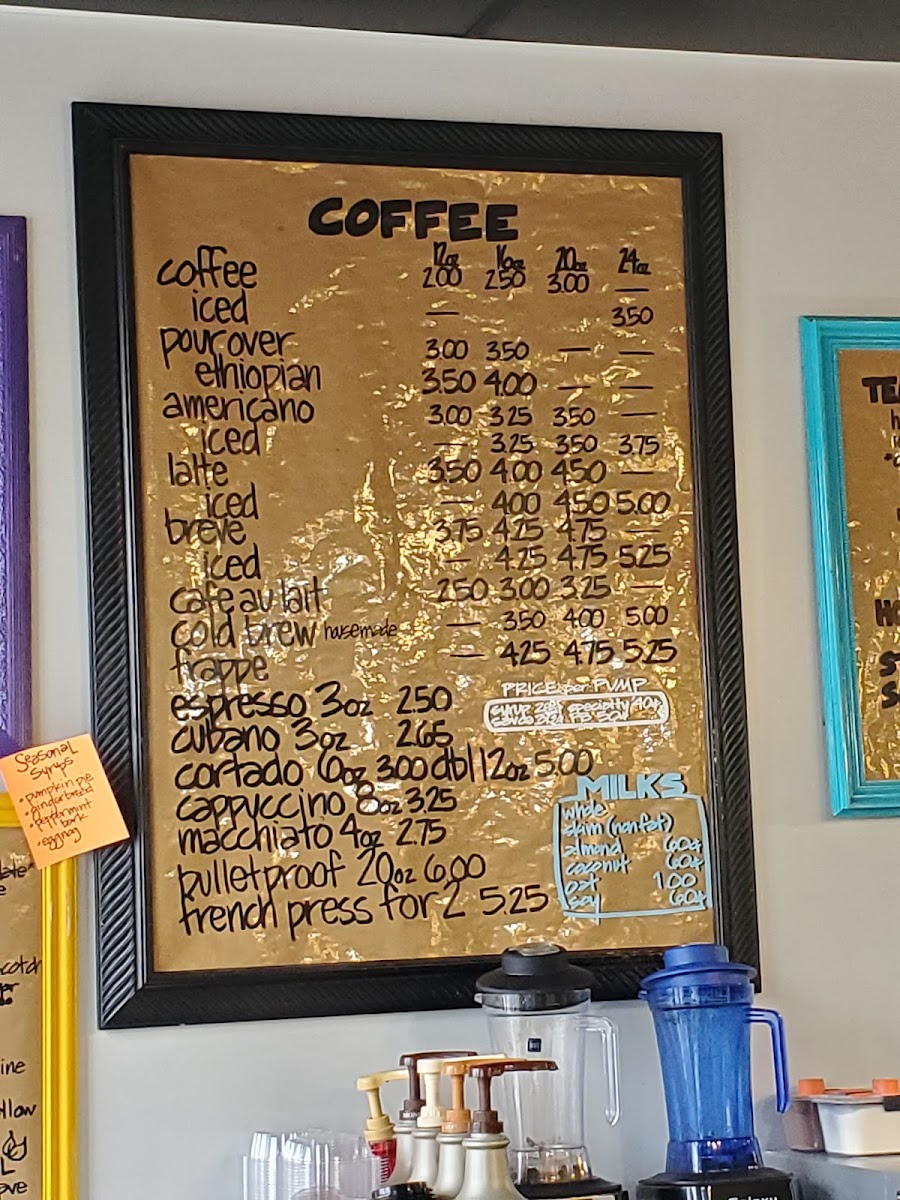 COFFEE
12oz 16oz 20oz 24oz
coffee 2.00 2.50 3.00 —
iced — 3.50
pourover 3.00 3.50 — —
ethiopian 3.50 4.00 — —
americano 3.00 3.25 3.50 —
iced — 3.25 3.50 3.75
latte 3.50 4.00 4.50 —
iced — 4.00 4.50 5.00
breve 3.75 4.25 4.75 —
iced — 4.25 4.75 5.25
cafe au lait 2.50 3.00 3.25 —
cold brew housemade — 3.50 4.00 5.00
frappe — 4.25 4.75 5.25
espresso 3oz 2.50
cubano 3oz 2.65
cortado 6oz 3.00 dbl 12oz 5.00
cappuccino 8oz 3.25
macchiato 4oz 2.75
bulletproof 20oz 6.00
french press for 2 5.25
PRICE per PUMP
syrup specialty 40¢
sauce
MILKS
whole
skim (nonfat)
almond 60¢
coconut 60¢
oat 1.00
soy 60¢
Seasonal
Syrups
• pumpkin pie
• gingerbread
• peppermint
bark
• eggnog
TEA
scotch
ine
llow